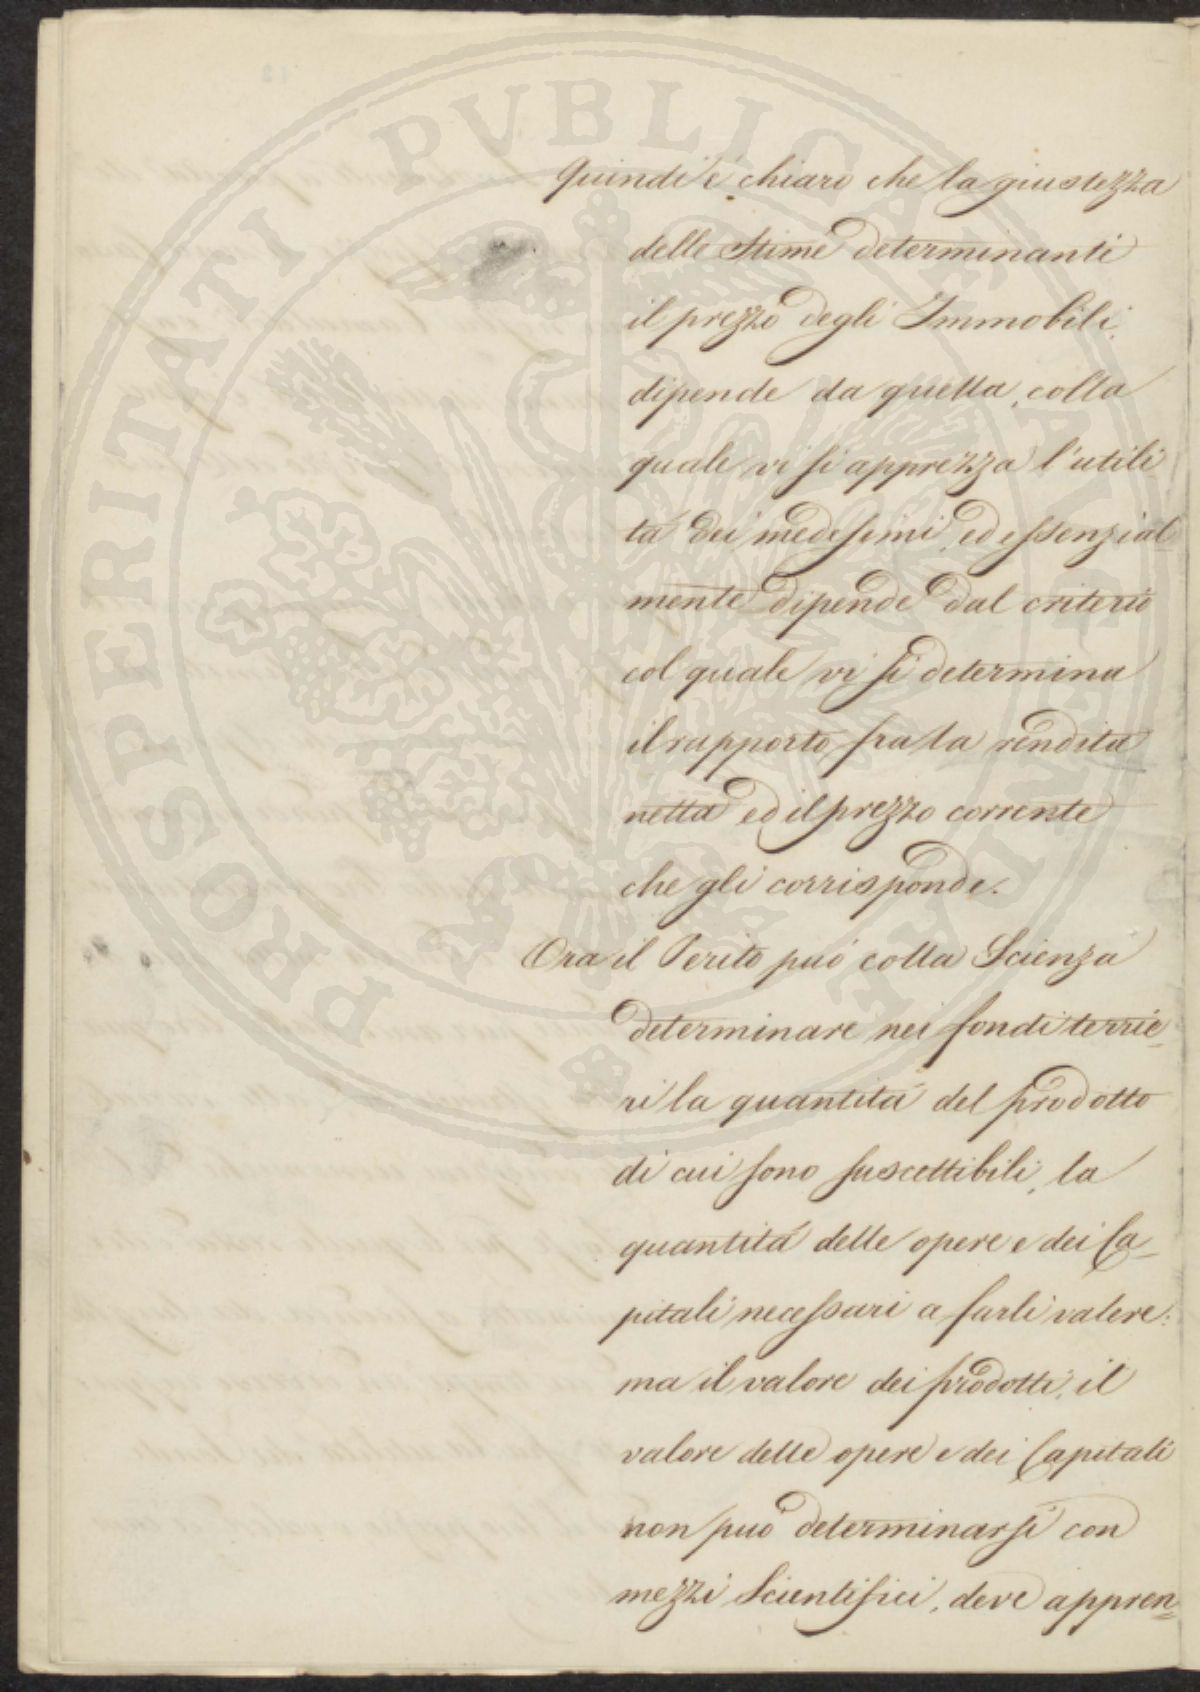 Quindi è chiaro che la giustezza
delle Stime determinanti
il prezzo degli Immobili,
dipende da quella, colla
quale vi si apprezza l'utili
tà dei medesimi, ed essenzial
mente dipende dal criterio
col quale vi si determina
il rapporto fra la rendita
netta ed il prezzo corrente
che gli corrisponde.
Ora il Perito può colla Scienza
determinare nei fondi terrie-
ri la quantità del prodotto
di cui sono suscettibili, la
quantità delle opere e dei Ca-
pitali necessari a farli valere:
ma il valore dei prodotti, il
valore delle opere e dei Capitali
non può determinarsi con
mezzi Scientifici, deve appren=
PROSPERITATI PVBLICAE AVGENDAE